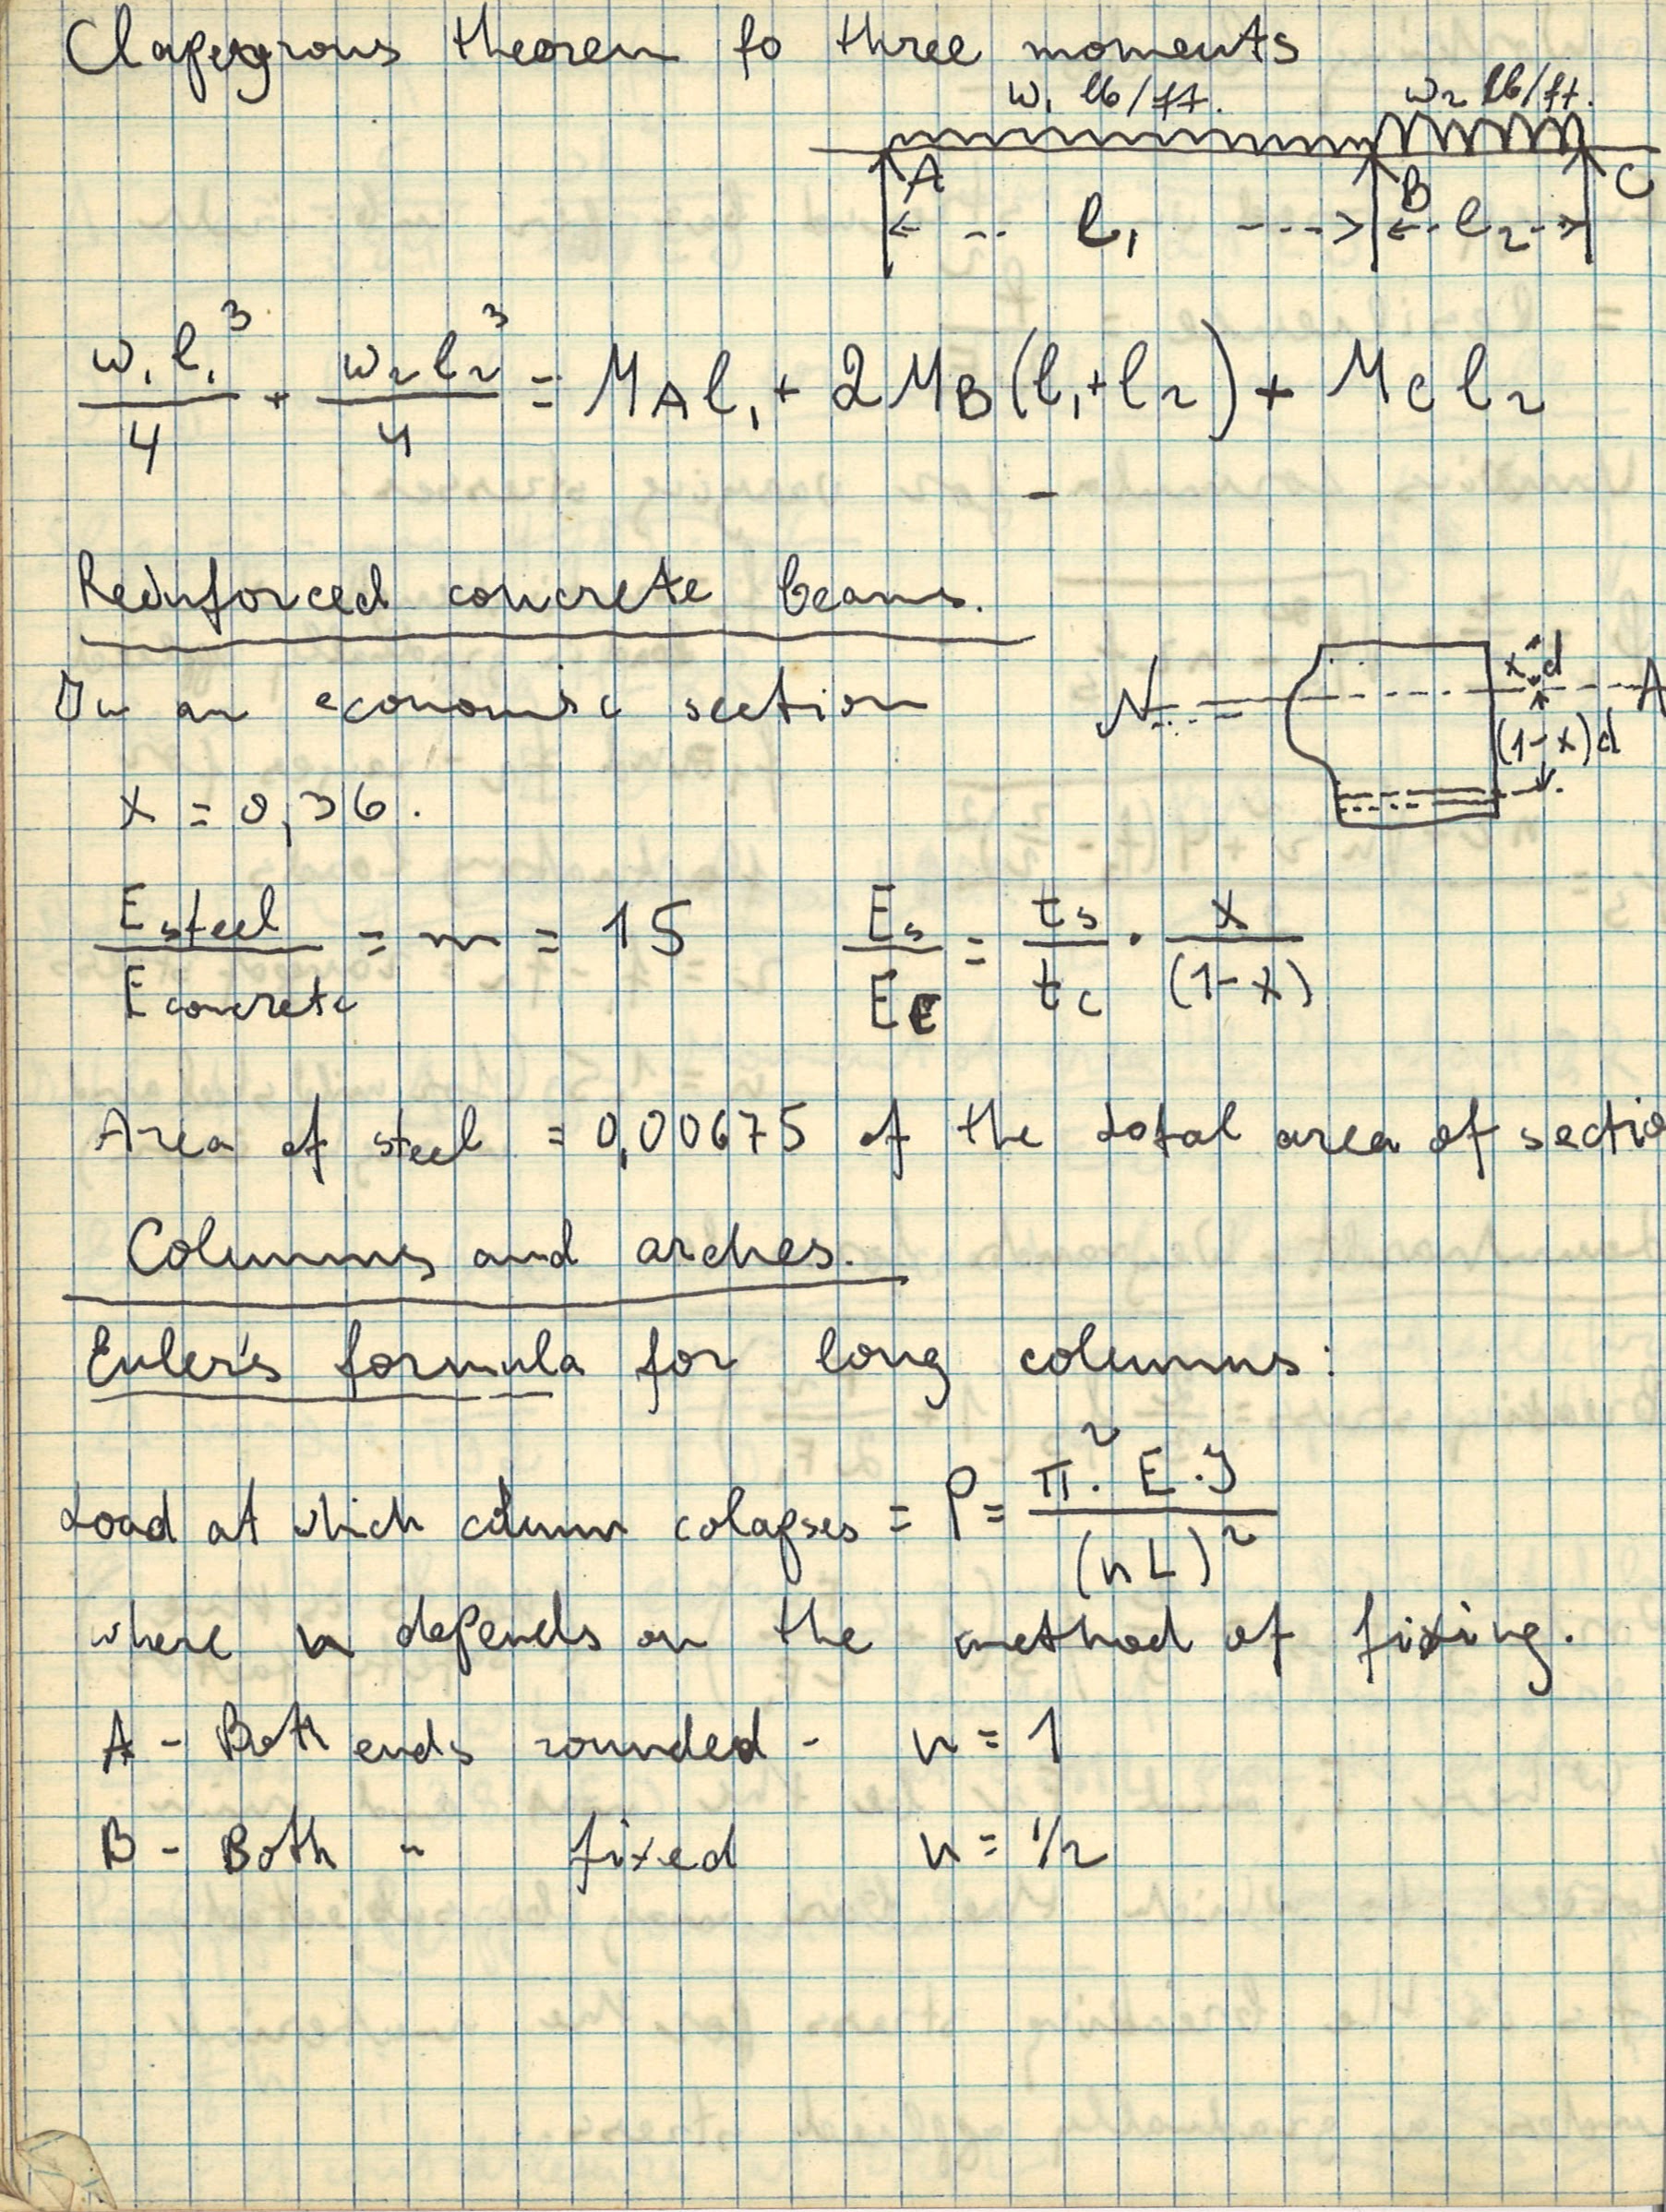 Clapeyrous theorem fo three moments
w₁ lb/ft. w₂ lb/ft.
A B C
l₁ l₂
w₁l₁³/4 + w₂l₂³/4 = MAl₁ + 2MB(l₁+l₂) + MCl₂
Reinforced concrete beams.
In an economic section
N A
x.d
(1-x)d
x = 0,36.
Esteel/Econcrete = m = 15 Es/Ec = ts/tc . x/(1-x)
Area of steel = 0,00675 of the total area of sectio
Columns and arches.
Euler's formula for long columns:
Load at which column colapses = P = π².E.J/(nL)²
where n depends on the method of fixing.
A - Both ends rounded - n = 1
B - Both " fixed n = 1/2